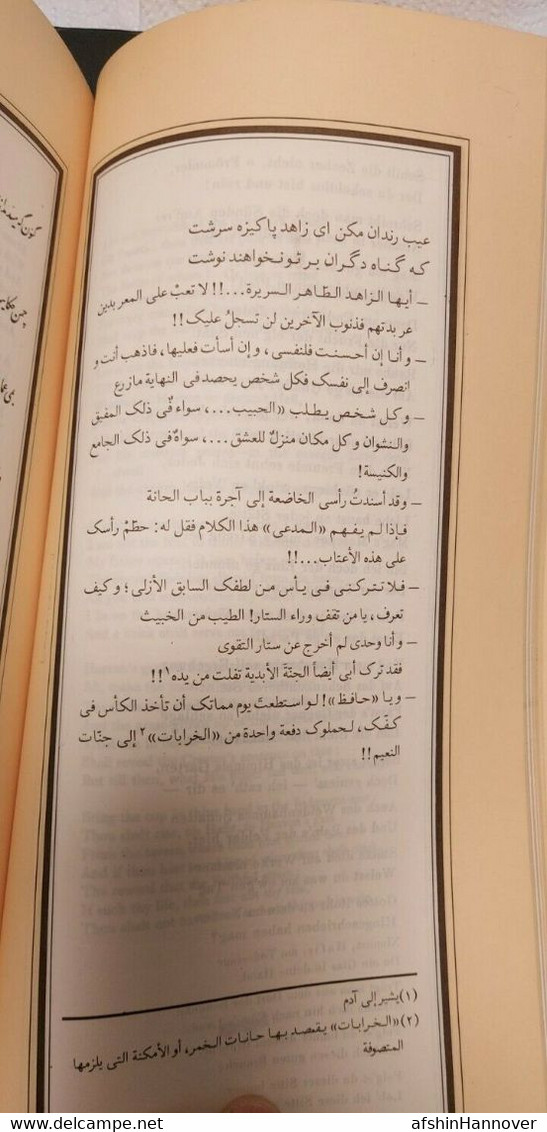 عیب رندان مکن ای زاهد پاکیزه سرشت
که گناه دگران بر تو نخواهند نوشت
– أيها الزاهد الطاهر السريرة...!! لا تعبْ علی المعربدين
عربدتهم فذنوب الآخرين لن تسجلُ عليک!!
– وأنا إن أحسنت فلنفسی، وإن أسأت فعليها، فاذهب أنت و
انصرف إلی نفسک فکل شخص يحصد فی النهاية مازرع
– وکل شخص يطلب «الحبيب...، سواء فی ذلک المفيق
والنشوان وکل مکان منزلٌ للعشق...، سواءٌ فی ذلک الجامع
والکنيسة!
– وقد أسندتُ رأسی الخاضعة إلی آجرة بباب الحانة
فإذا لم يفهم «المدعی» هذا الکلام فقل له: حطّمْ رأسک
علی هذه الأعتاب...!!
– فلا تترکنی فی يأس من لطفک السابق الأزلی؛ وکيف
تعرف، يا من تقف وراء الستار! الطيب من الخبيث
– وأنا وحدی لم أخرج عن ستار التقوی
فقد ترک أبی أيضاً الجنّة الأبدية تفلت من يده۱!!
– ويا «حافظ»! لو استطعتَ يوم مماتک أن تأخذ الکأس فی
کفّک، لحملوک دفعة واحدة من «الخرابات»۲ إلی جنّات
النعيم!!
(۱) يشير إلی آدم
(۲) «الخرابات» يقصد بها حانات الخمر، أو الأمکنة التی يلزمها
المتصوفة
afshinHannover